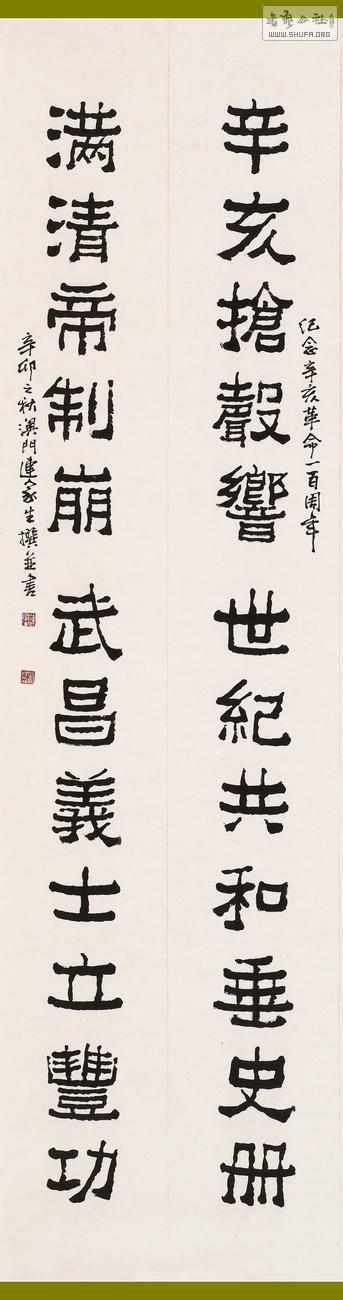 書藝公社
WWW.SHUFA.ORG
纪念辛亥革命一百周年
辛亥搶聲響世紀共和垂史册
满清帝制崩武昌義士立豐功
辛卯之秋澳門連家生撰並書